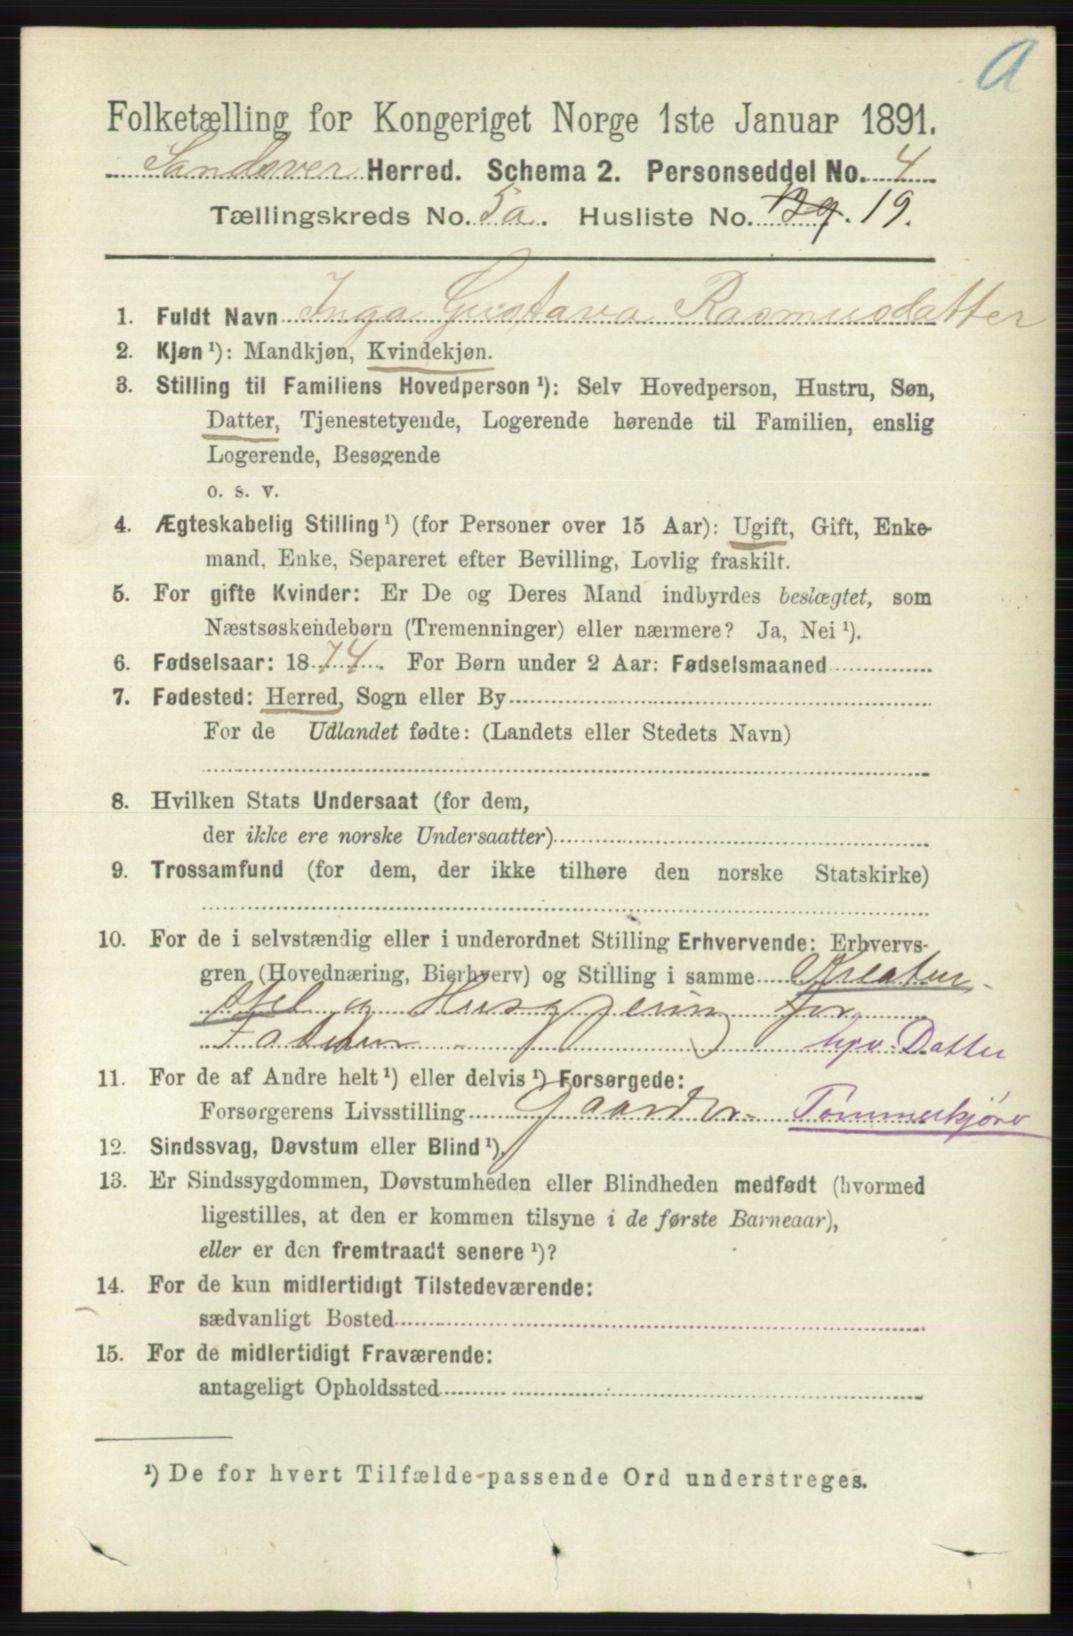 A
Folketælling for Kongeriget Norge 1ste Januar 1891.
Sandsver Herred. Schema 2. Personseddel No. 4
Tællingskreds No. 5a. Husliste No. 19.
1. Fuldt Navn Inga Gustava Rasmusdatter
2. Kjøn ¹): Mandkjøn, Kvindekjøn.
3. Stilling til Familiens Hovedperson ¹): Selv Hovedperson, Hustru, Søn,
Datter, Tjenestetyende, Logerende hørende til Familien, enslig
Logerende, Besøgende
o. s. v.
4. Ægteskabelig Stilling ¹) (for Personer over 15 Aar): Ugift, Gift, Enke-
mand, Enke, Separeret efter Bevilling, Lovlig fraskilt.
5. For gifte Kvinder: Er De og Deres Mand indbyrdes beslægtet, som
Næstsøskendebørn (Tremenninger) eller nærmere? Ja, Nei ¹).
6. Fødselsaar: 1874. For Børn under 2 Aar: Fødselsmaaned
7. Fødested: Herred, Sogn eller By
For de Udlandet fødte: (Landets eller Stedets Navn)
8. Hvilken Stats Undersaat (for dem,
der ikke ere norske Undersaatter)
9. Trossamfund (for dem, der ikke tilhøre den norske Statskirke)
10. For de i selvstændig eller i underordnet Stilling Erhvervende: Erhvervs-
gren (Hovednæring, Bierhverv) og Stilling i samme Kreatur-
stel og Husgjerning for
Faderen - hjv. Datter
11. For de af Andre helt ¹) eller delvis ¹) Forsørgede:
Forsørgerens Livsstilling Gaardbr. Tømmerkjører
12. Sindssvag, Døvstum eller Blind ¹).
13. Er Sindssygdommen, Døvstumheden eller Blindheden medfødt (hvormed
ligestilles, at den er kommen tilsyne i de første Barneaar),
eller er den fremtraadt senere ¹)?
14. For de kun midlertidigt Tilstedeværende:
sædvanligt Bosted
15. For de midlertidigt Fraværende:
antageligt Opholdssted
¹) De for hvert Tilfælde passende Ord understreges.